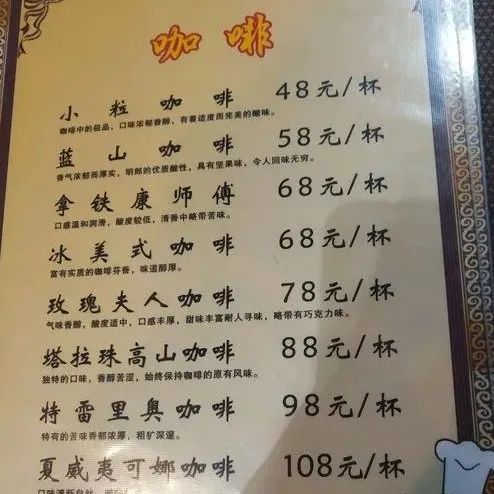 咖啡
小粒咖啡 48元/杯
咖啡中的极品，口味浓郁香醇，有着适度而完美的酸味。
蓝山咖啡 58元/杯
香气浓郁而厚实，明郎的优质酸性，具有坚果味，令人回味无穷。
拿铁康师傅 68元/杯
口感温和润滑，酸度较低，清香中略带苦味。
冰美式咖啡 68元/杯
富有实质的咖啡芬香，味道醇厚。
玫瑰夫人咖啡 78元/杯
气味香醇，酸度适中，口感丰厚，甜味丰富耐人寻味，略带有巧克力味。
塔拉珠高山咖啡 88元/杯
独特的口味，香醇苦涩，始终保持咖啡的原有风味。
特雷里奥咖啡 98元/杯
特有的苦味香郁浓厚，粗犷深邃。
夏威夷可娜咖啡 108元/杯
口味清新自然